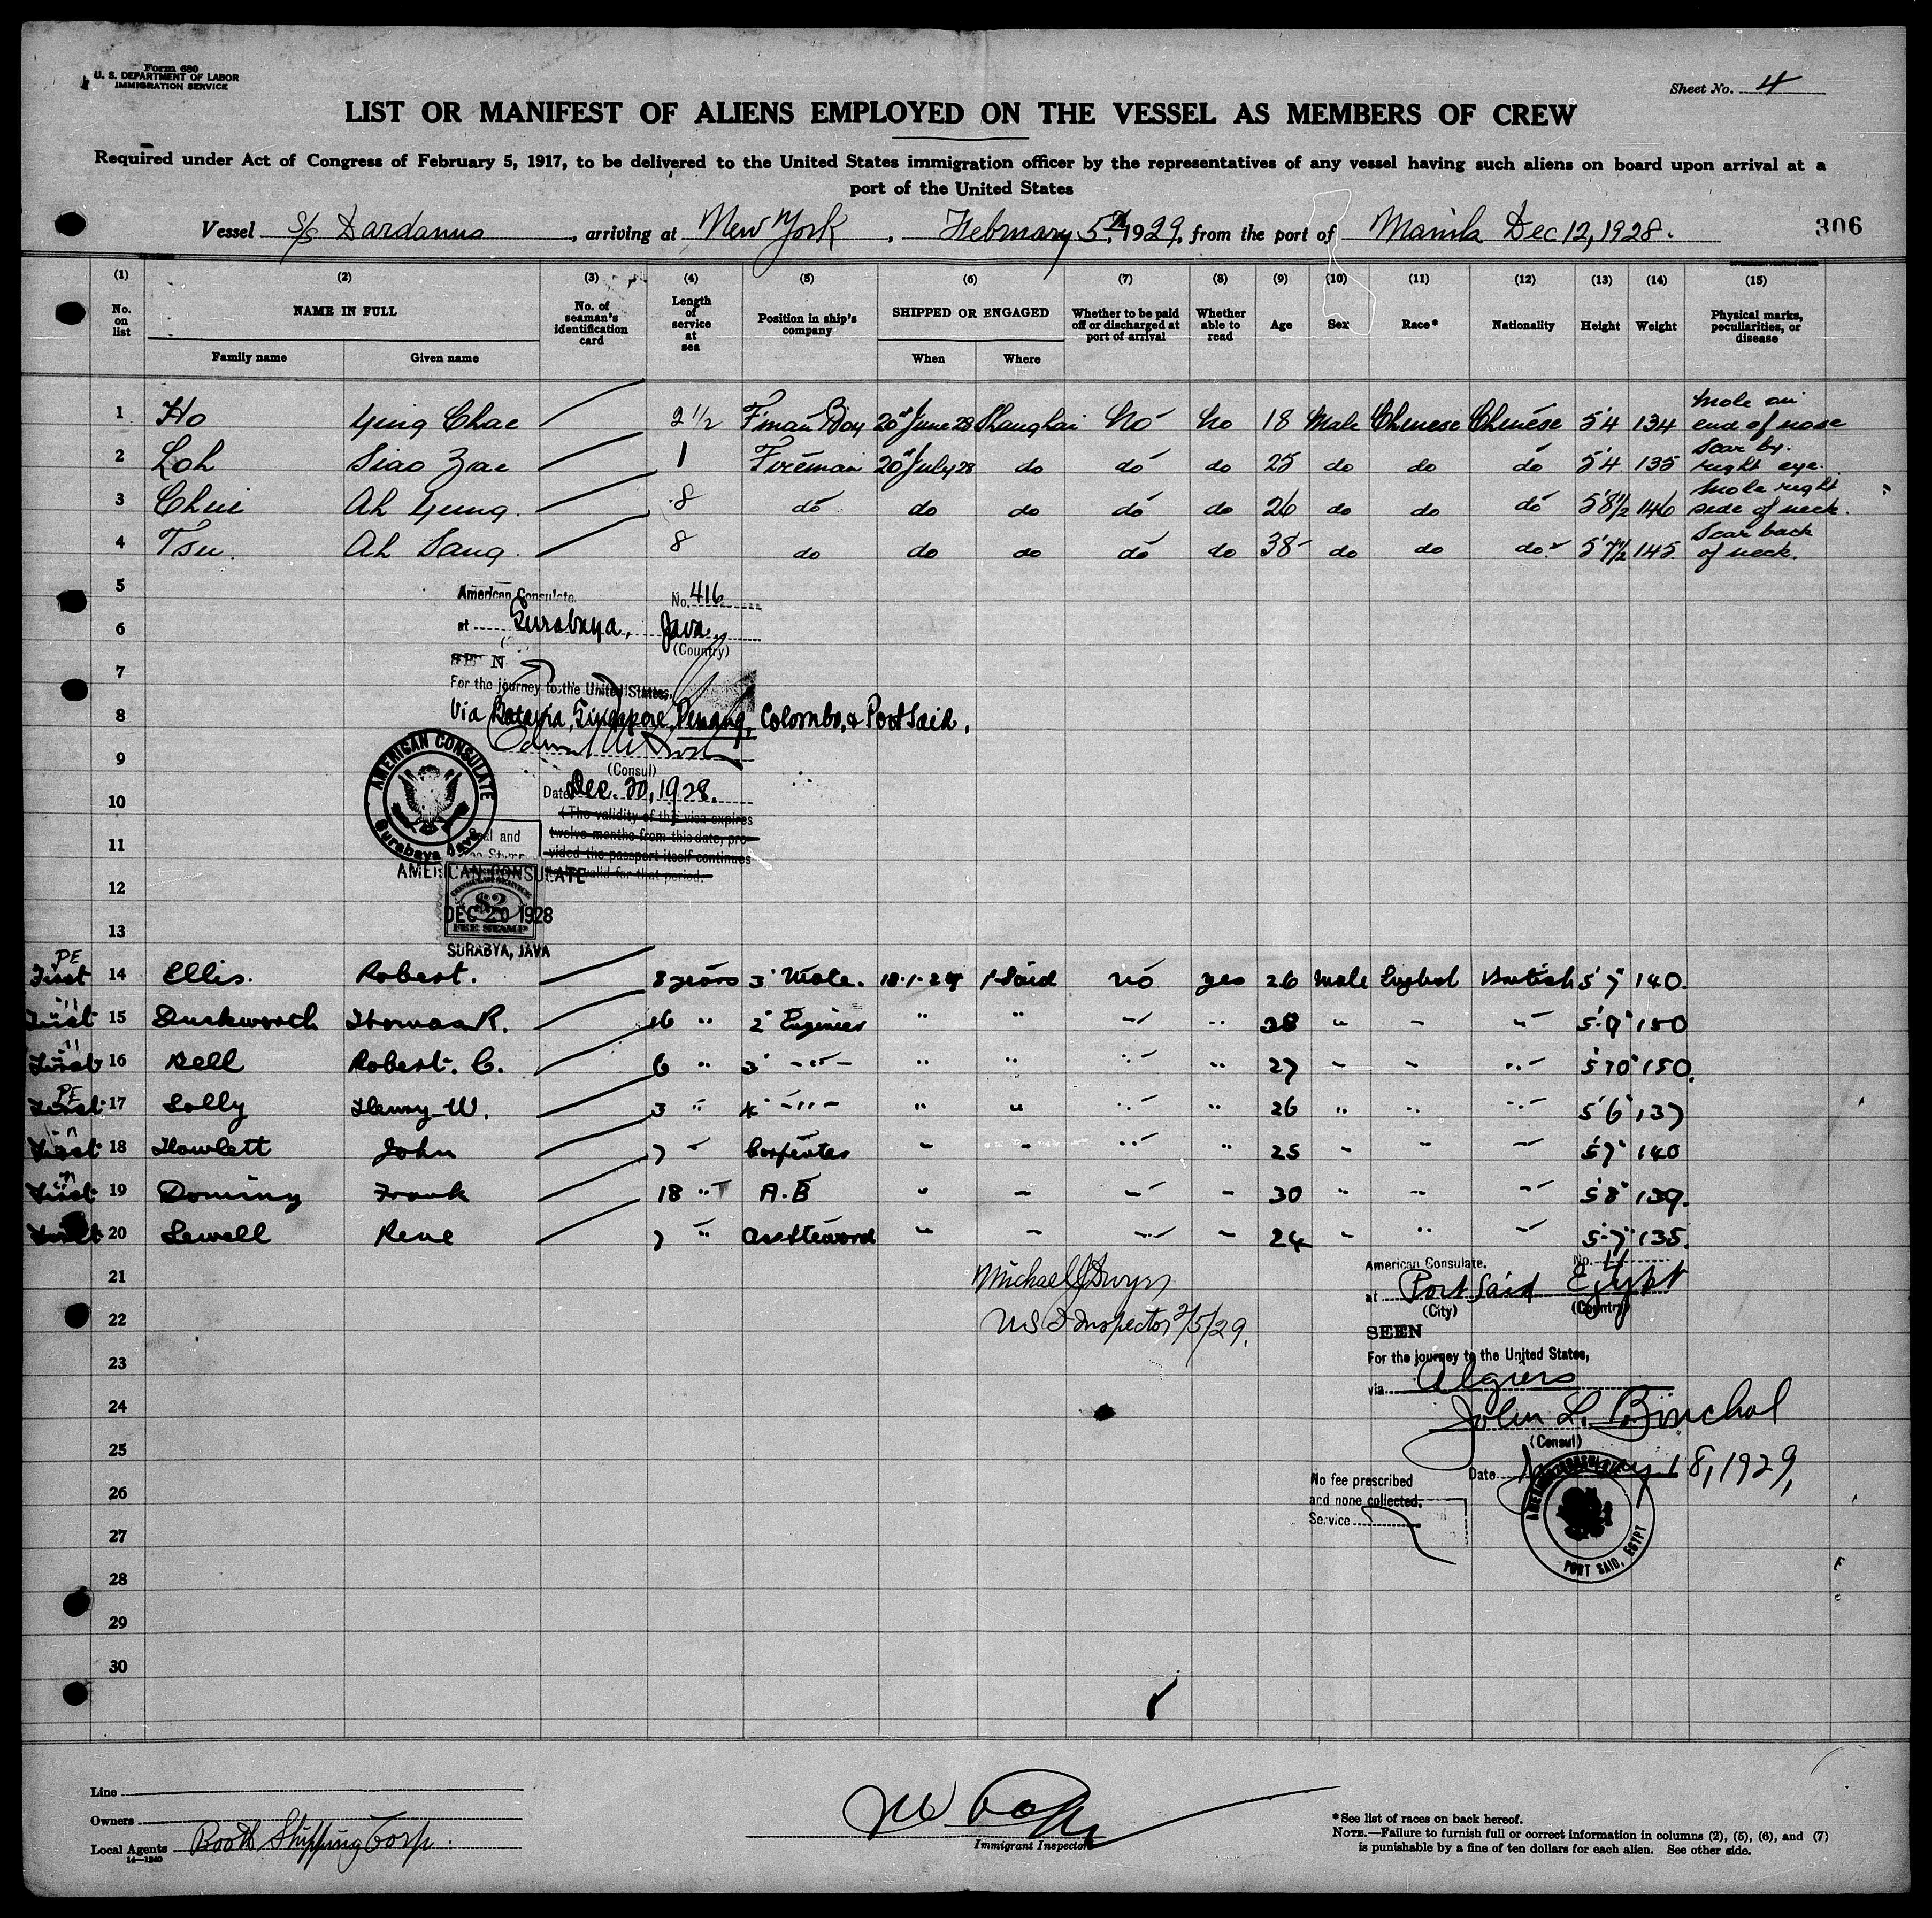 Form 680
U. S. DEPARTMENT OF LABOR
IMMIGRATION SERVICE
Sheet No. 4
LIST OR MANIFEST OF ALIENS EMPLOYED ON THE VESSEL AS MEMBERS OF CREW
Required under Act of Congress of February 5, 1917, to be delivered to the United States immigration officer by the representatives of any vessel having such aliens on board upon arrival at a
port of the United States
Vessel S/S Dardanus, arriving at New York, February 5, 1929, from the port of Manila Dec 12, 1928.
306
(1) (2) (3) (4) (5) (6) (7) (8) (9) (10) (11) (12) (13) (14) (15)
No. on list NAME IN FULL No. of seaman's identification card Length of service at sea Position in ship's company SHIPPED OR ENGAGED Whether to be paid off or discharged at port of arrival Whether able to read Age Sex Race* Nationality Height Weight Physical marks, peculiarities, or disease
Family name Given name When Where
1 Ho Ying Chae 2 1/2 F'man Boy 20th June 28 Shanghai No No 18 Male Chenese Chenese 5'4 134 Mole on end of nose
2 Loh Siao Zae 1 Fireman 20th July 28 do do do 25 do do do 5'4 135 Scar by right eye.
3 Chui Ah Yung. 8 do do do do do 26 do do do 5'8 1/2 146 Mole right side of neck.
4 Tsu. Ah Sang. 8 do do do do do 38 do do do 5'7 1/2 145 Scar back of neck.
5
American Consulate. No. 416
6
at Surabaya, Java.
(Country)
SEEN
7
For the journey to the United States,
8
Via Batavia, Singapore, Penang, Colombo, & Port Said.
9
(Consul)
AMERICAN CONSULATE
Surabaya Java
10
Date Dec. 20, 1928.
(The validity of this visa expires
11
Seal and twelve months from this date, pro-
Fee Stamp vided the passport itself continues
valid for that period.
AMERICAN CONSULATE
12
$2
DEC 20 1928
FEE STAMP
13
SURABYA, JAVA
PE
First 14 Ellis. Robert. 8 years 3' Mate. 18-1-29 P. Said no yes 26 Male English British 5'7" 140.
First 15 Duckworth Thomas R. 16 " 2' Engineer " " " " 38 " " " 5'9" 150
First 16 Bell Robert. C. 6 " 3' " " " " 27 " " " 5'10" 150.
PE
First 17 Lolly Henry W. 3 " 4' " " " " " 26 " " " 5'6" 137
First 18 Howlett John 7 " Carpenter " " " " 25 " " " 5'7" 140
First 19 Dominy Frank 18 " A.B " " " " 30 " " " 5'8" 139.
First 20 Sewell Rene 7 " Ass Steward " " " " 24 " " " 5'7" 135.
21
Michael J Dwyer
American Consulate. No. 4
at Port Said Egypt
(City) (Country)
22
U S I Inspector 2/5/29.
SEEN
23
For the journey to the United States,
via Algiers
24
John L. Binchal
25
(Consul)
Date 18, 1929,
No fee prescribed
26
and none collected.
Service
AMERICAN CONSULATE
PORT SAID, EGYPT
27
28
29
30
Line
Owners
Local Agents Booth Shipping Corp.
14—1240
Immigrant Inspector
*See list of races on back hereof.
NOTE.—Failure to furnish full or correct information in columns (2), (5), (6), and (7)
is punishable by a fine of ten dollars for each alien. See other side.